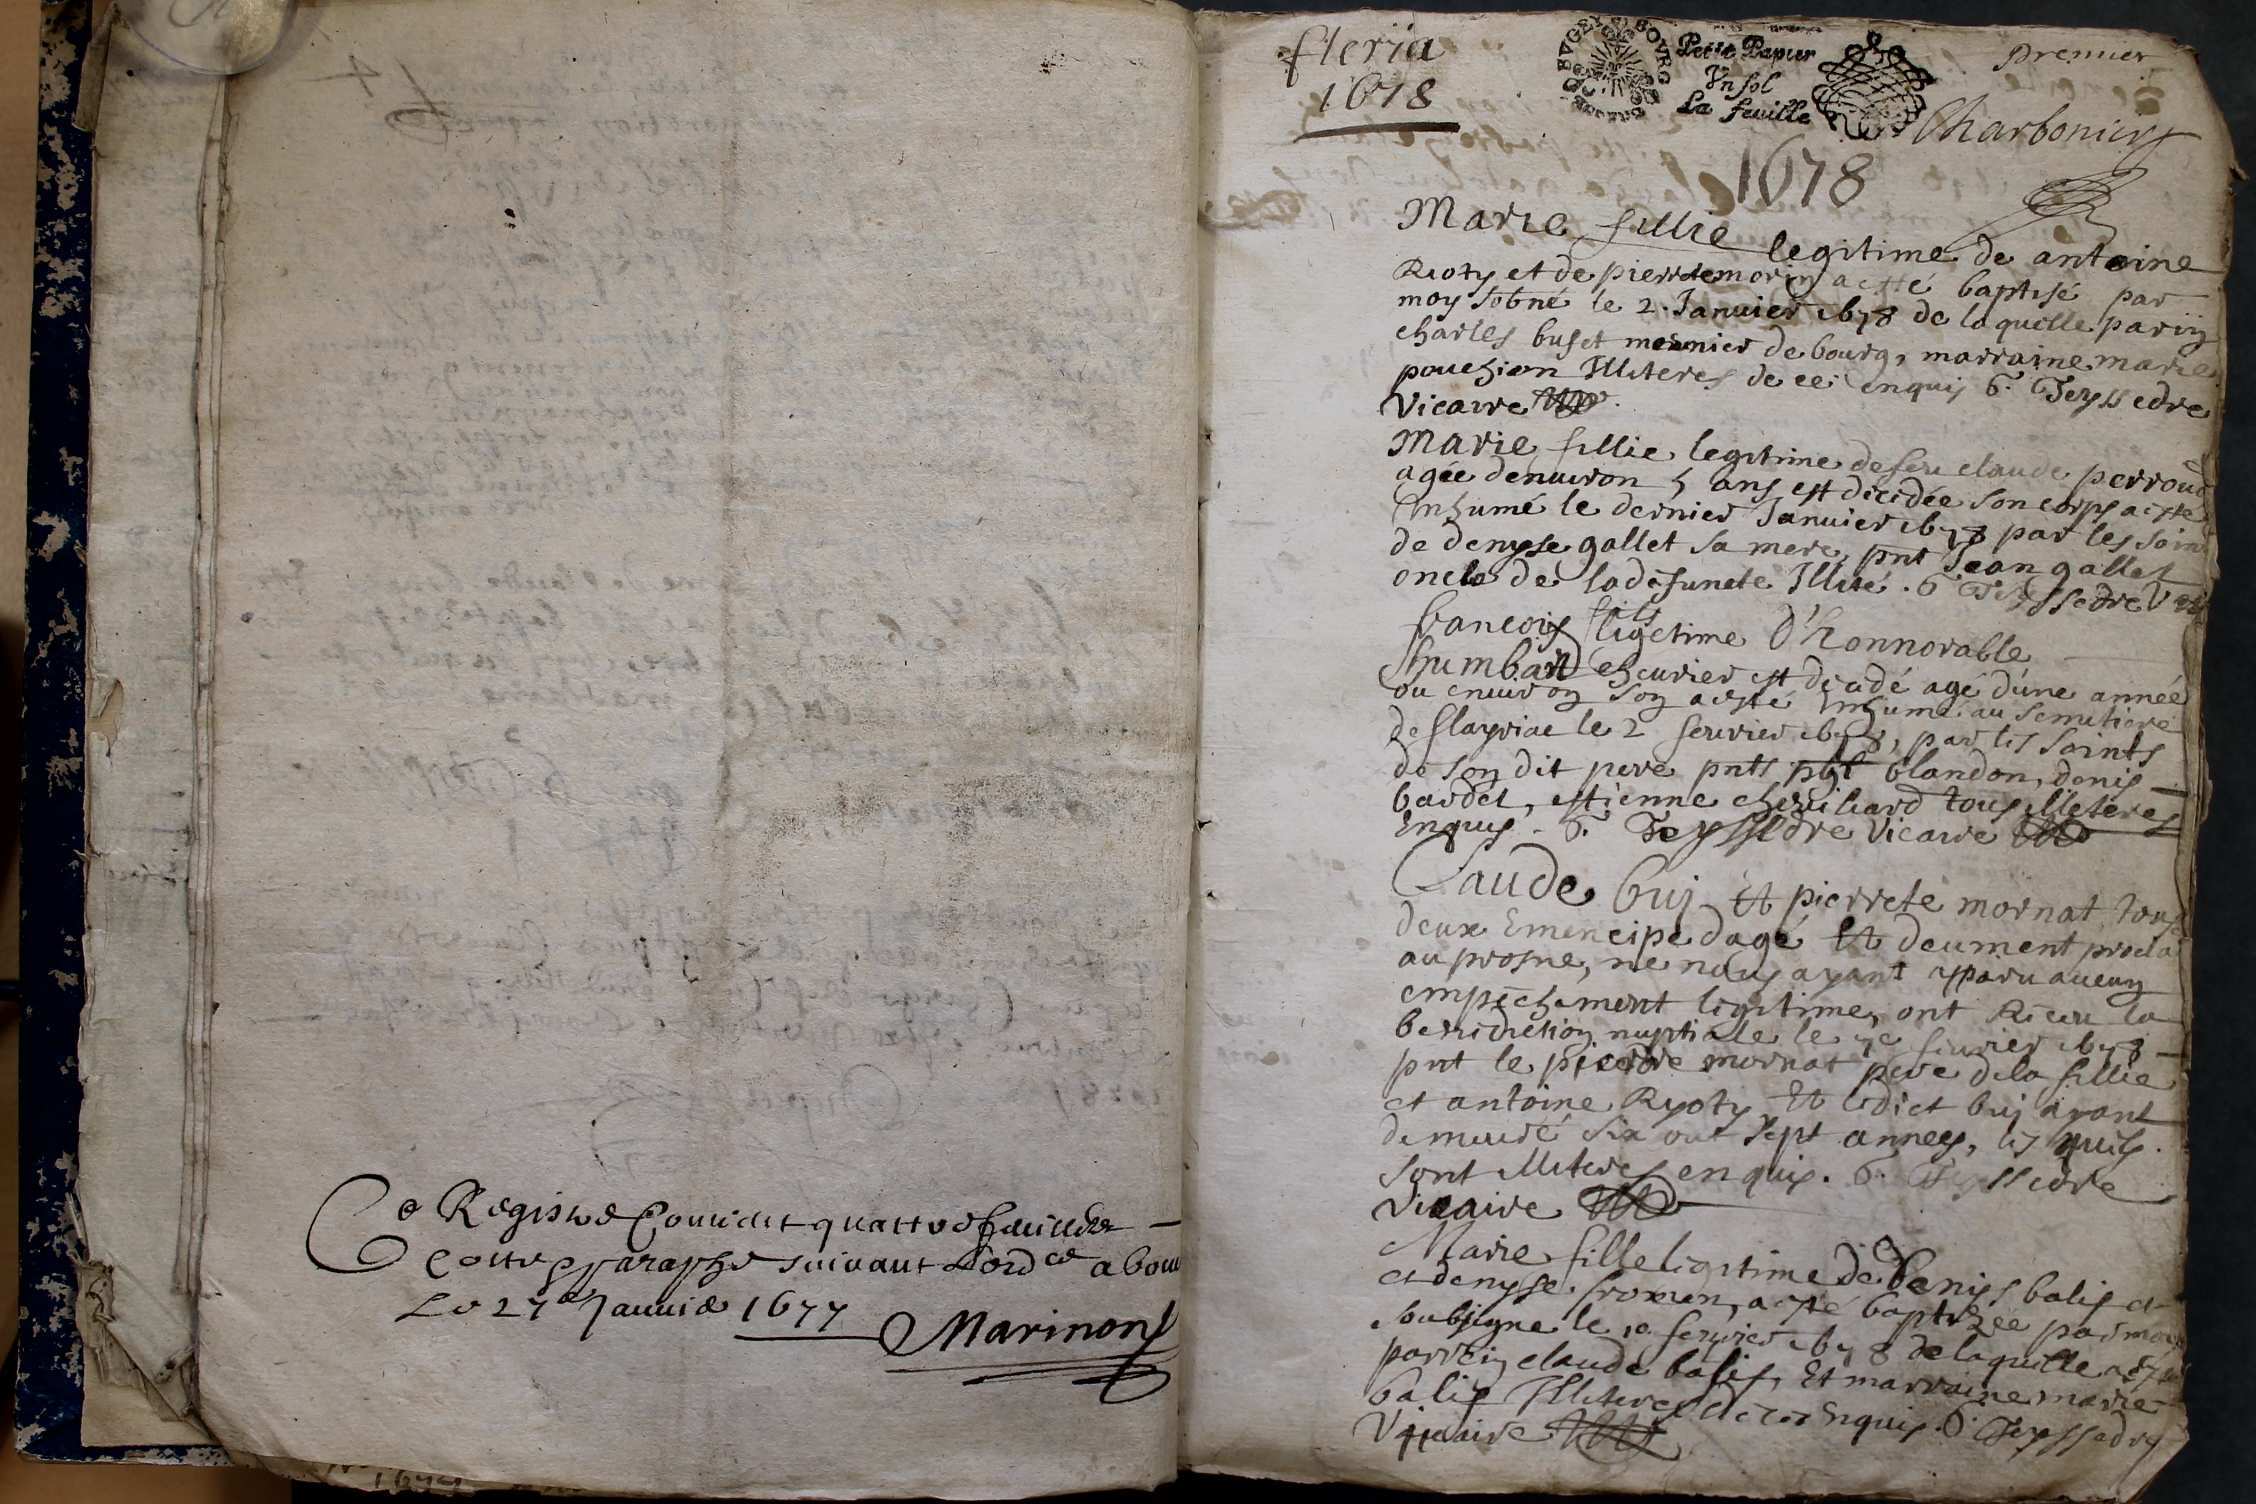 4
Ce Registre Contient quattre feuilles
Cotte & paraphe suivant Lordce a bour
Le 27e Janvie 1677
Marinon
1677
fleria
1678
BVGEY BOVRG
Petit Papier
Vn sol
La feuille
premier
Charbonier
1678
Marie fillie legitime de antoine
Rioty et de pierrete morin a esté baptisé par
moy sobné le 2 Januier 1678 de laquelle parin
charles buset meunier de bourg, marraine marie
pouchion Illiteres de ce enquis G. Teyssedre
Vicaire
Marie fillie legitime de feu claude perroud
agée denuiron 5 ans est decidée son corps a esté
Enhumé le dernier Januier 1678 par les soin
de denyse gallet sa mere, pnt Jean gallet
oncle de ladefuncte Illité. G Teyssedre Vic
francois fils ligetime d'honnorable
humbart cheurier est decadé agé d'une année
ou enuiron son a esté Enhumé au semitiere
de flayriac le 2 feurier 1678, par les soints
de son dit pere pnts pbt blandon, denis
bardet, estienne cheuiliard tous illeteres
Enquis. G. Teyssedre Vicaire
Claude buj Et pierrete mornat tous
deux Emencipe dagé Et deument procla
au prosne, ne nous ayant apparu aucun
empechement ligitime, ont Receu la
benidiction nuptiale le 7e feurier 1678
pnt le pierre mornat pere dela fillie
et antoine Ryoty Et ledict buj ayant
demeuré six out sept annees, les quels
sont illiteres enquis. G. Teyssedre
Vicaire
Marie fille ligitime de Denis balis et
et denyse fromen, a esté baptizée par moy
soubsigne le 10 feurier 1678 de laquelle a esté
parrein claude balis, Et marraine marie
balis Illiteres de ce Enquis. G. Teyssedre
Vicaire